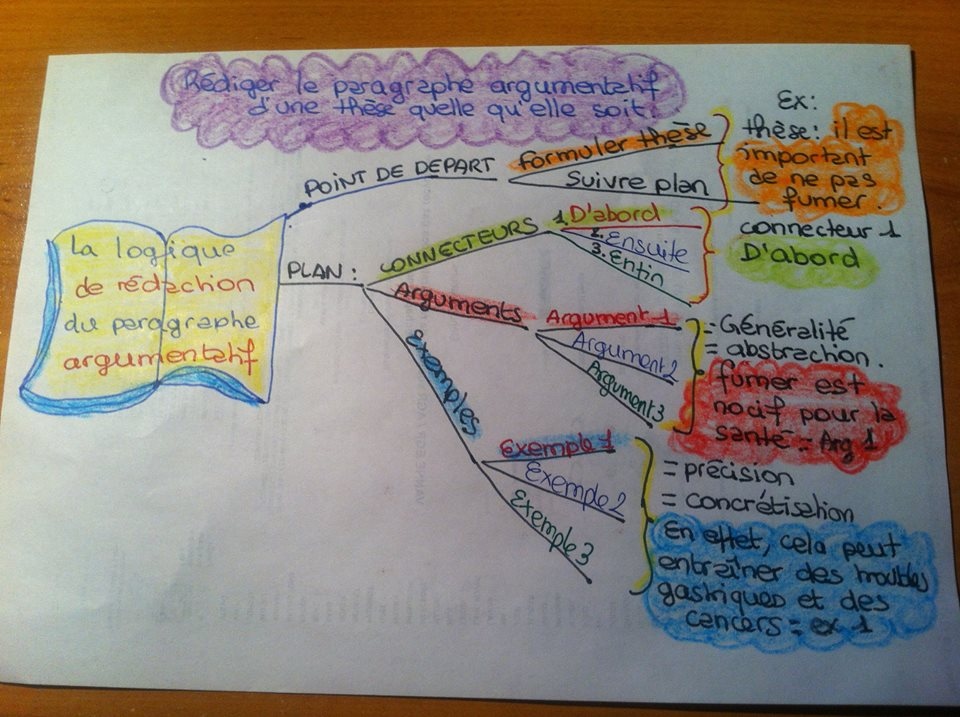 Rédiger le paragraphe argumentatif
d'une thèse quelle qu'elle soit.
la logique
de rédaction
du paragraphe
argumentatif
POINT DE DEPART
formuler thèse
Suivre plan
Ex:
thèse: il est
important
de ne pas
fumer.
PLAN:
CONNECTEURS
1. D'abord
2. Ensuite
3. Enfin
connecteur 1
D'abord
Arguments
Argument 1
Argument 2
Argument 3
= Généralité
= abstraction.
fumer est
nocif pour la
santé = Arg 1
Exemples
Exemple 1
Exemple 2
Exemple 3
= précision
= concrétisation
En effet, cela peut
entraîner des troubles
gastriques et des
cancers = ex 1